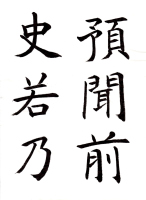 預聞前
史若乃